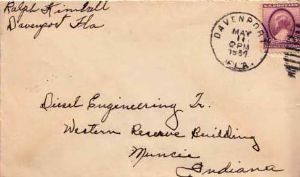 Ralph Kimball
Davenport Fla
DAVENPORT
MAY
11
2 PM
1937
FLA.
Diesel Engineering Tr.
Western Reserve Building
Muncie
Indiana